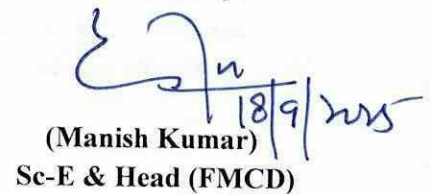 18/9/2025
(Manish Kumar)
Sc-E & Head (FMCD)